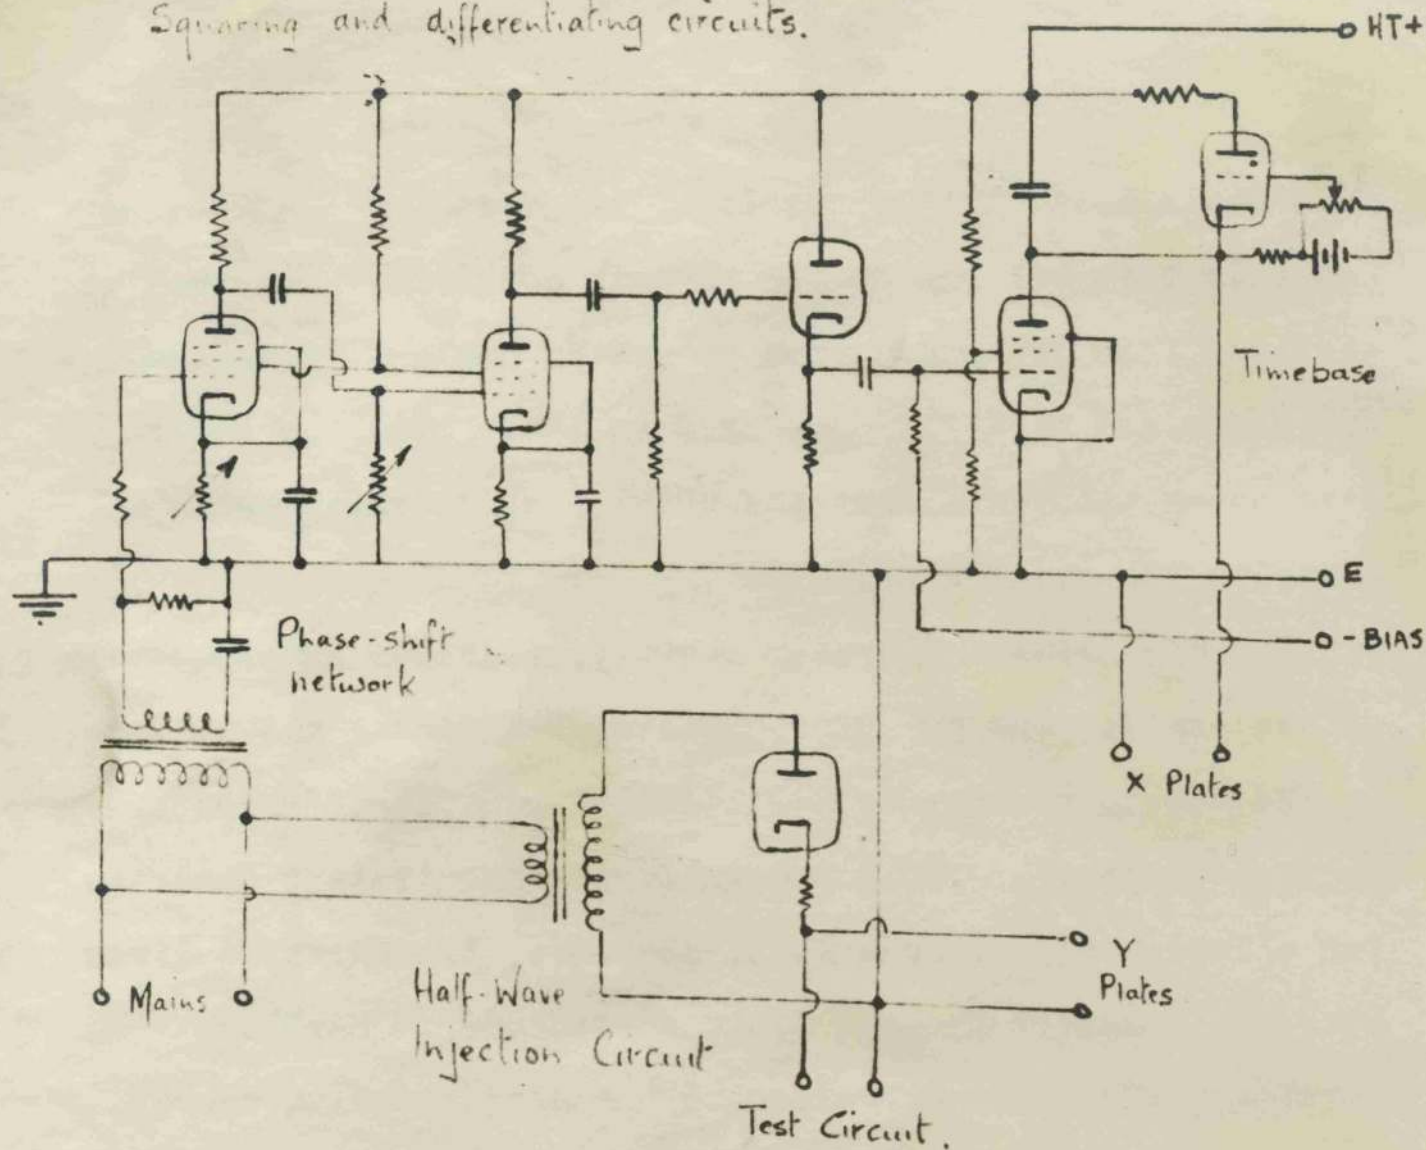 Squaring and differentiating circuits.
HT+
Timebase
E
-BIAS
Phase-shift
network
X Plates
Mains
Half-Wave
Injection Circuit
Y
Plates
Test Circuit.